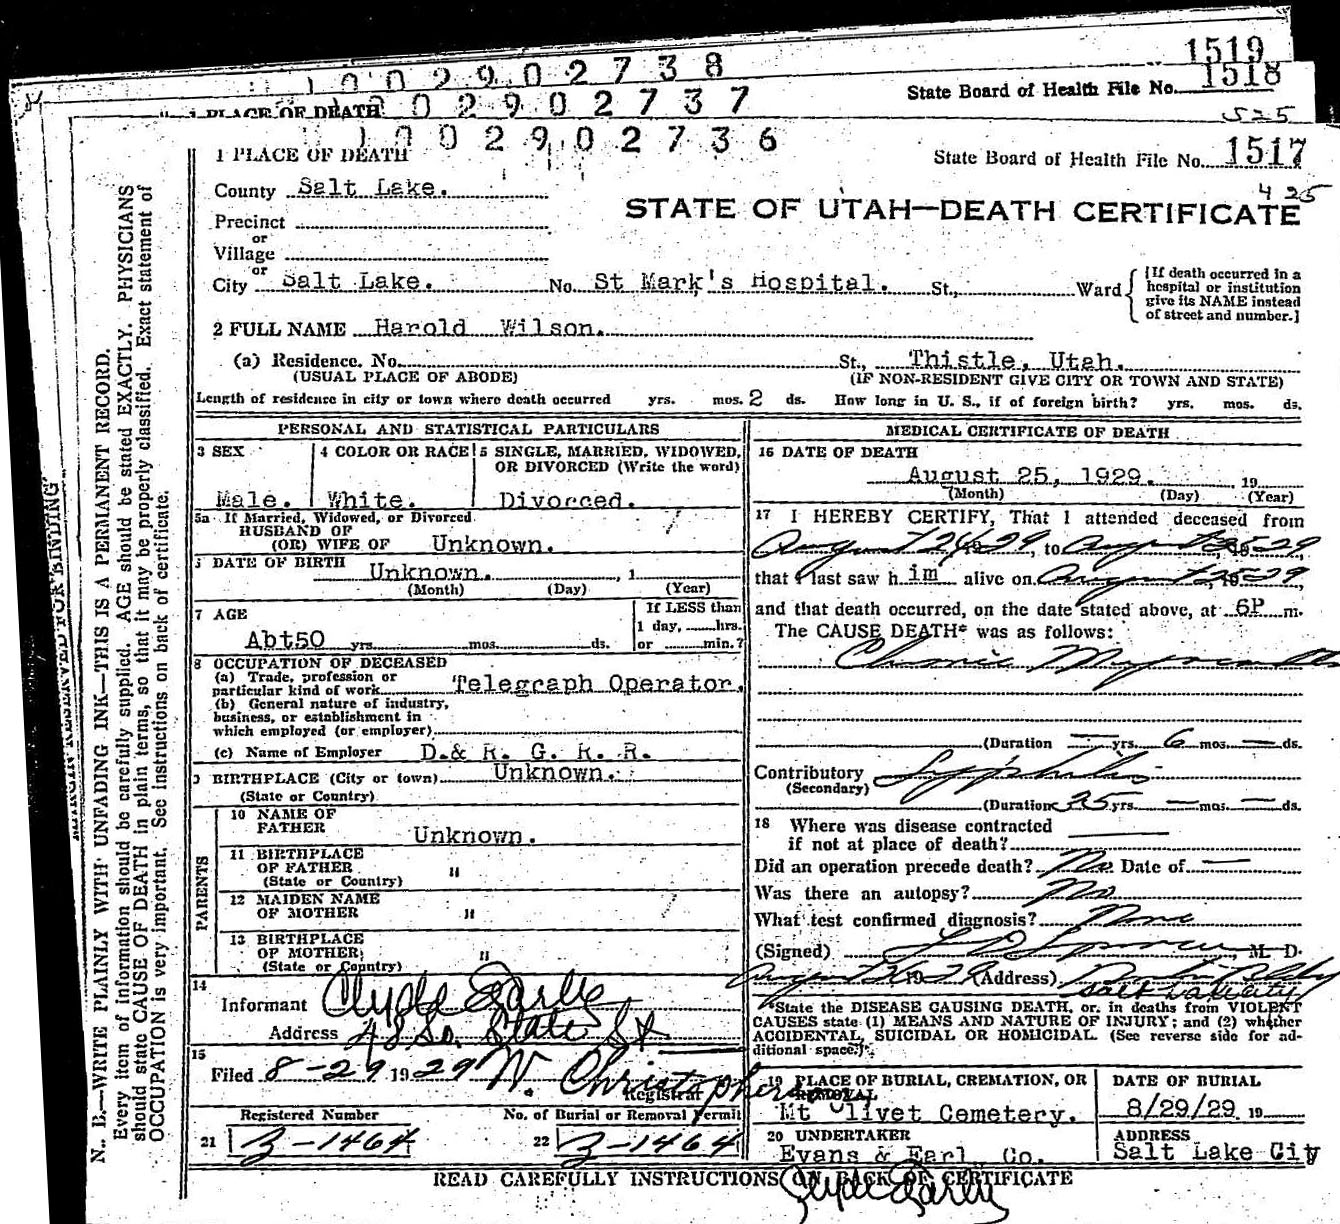 1519
1002902738
State Board of Health File No. 1518
1 PLACE OF DEATH 1002902737
525
1002902736
1 PLACE OF DEATH
State Board of Health File No. 1517
425
County Salt Lake.
STATE OF UTAH—DEATH CERTIFICATE
Precinct
or
Village
or
City Salt Lake. No. St Mark's Hospital. St., Ward
[If death occurred in a hospital or institution give its NAME instead of street and number.]
2 FULL NAME Harold Wilson.
(a) Residence. No. St., Thistle, Utah.
(USUAL PLACE OF ABODE) (IF NON-RESIDENT GIVE CITY OR TOWN AND STATE)
Length of residence in city or town where death occurred yrs. mos. 2 ds. How long in U. S., if of foreign birth? yrs. mos. ds.
PERSONAL AND STATISTICAL PARTICULARS
3 SEX 4 COLOR OR RACE 5 SINGLE, MARRIED, WIDOWED,
OR DIVORCED (Write the word)
Male. White. Divorced.
5a If Married, Widowed, or Divorced
HUSBAND OF
(OR) WIFE OF Unknown.
DATE OF BIRTH Unknown. , 1
(Month) (Day) (Year)
7 AGE If LESS than
1 day, hrs.
Abt50 yrs. mos. ds. or min.?
8 OCCUPATION OF DECEASED
(a) Trade, profession or
particular kind of work Telegraph Operator.
(b) General nature of industry,
business, or establishment in
which employed (or employer)
(c) Name of Employer D.& R. G. R. R.
9 BIRTHPLACE (City or town) Unknown.
(State or Country)
PARENTS
10 NAME OF
FATHER Unknown.
11 BIRTHPLACE
OF FATHER "
(State or Country)
12 MAIDEN NAME
OF MOTHER "
13 BIRTHPLACE
OF MOTHER "
(State or Country)
14
Informant Clyde Early
Address 48 So. State St
15
Filed 8-29 1929 W. Christopherson
Registrar
Registered Number No. of Burial or Removal Permit
21 3-1464 22 3-1464
MEDICAL CERTIFICATE OF DEATH
16 DATE OF DEATH
August 25, 1929. , 19
(Month) (Day) (Year)
17 I HEREBY CERTIFY, That I attended deceased from
August 24 1929, to August 25 1929,
that I last saw h im alive on August 25 1929
and that death occurred, on the date stated above, at 6P m.
The CAUSE DEATH* was as follows:
Chronic Myocarditis
(Duration — yrs. 6 mos. — ds.
Contributory Syphilis
(Secondary)
(Duration 25 yrs. — mos. — ds.
18 Where was disease contracted
if not at place of death?
Did an operation precede death? No. Date of —
Was there an autopsy? No
What test confirmed diagnosis? None
(Signed) M. D.
August 1929 (Address) Bldg
Salt Lake City
*State the DISEASE CAUSING DEATH, or, in deaths from VIOLENT
CAUSES state (1) MEANS AND NATURE OF INJURY; and (2) whether
ACCIDENTAL, SUICIDAL OR HOMICIDAL. (See reverse side for ad-
ditional space.)
19 PLACE OF BURIAL, CREMATION, OR
REMOVAL
Mt Olivet Cemetery.
DATE OF BURIAL
8/29/29 19
20 UNDERTAKER
Evans & Earl Co.
ADDRESS
Salt Lake City
READ CAREFULLY INSTRUCTIONS ON BACK OF CERTIFICATE
Clyde Early
N. B.—WRITE PLAINLY WITH UNFADING INK—THIS IS A PERMANENT RECORD.
Every item of information should be carefully supplied. AGE should be stated EXACTLY. PHYSICIANS
should state CAUSE OF DEATH in plain terms, so that it may be properly classified. Exact statement of
OCCUPATION is very important. See instructions on back of certificate.
MARGIN RESERVED FOR BINDING